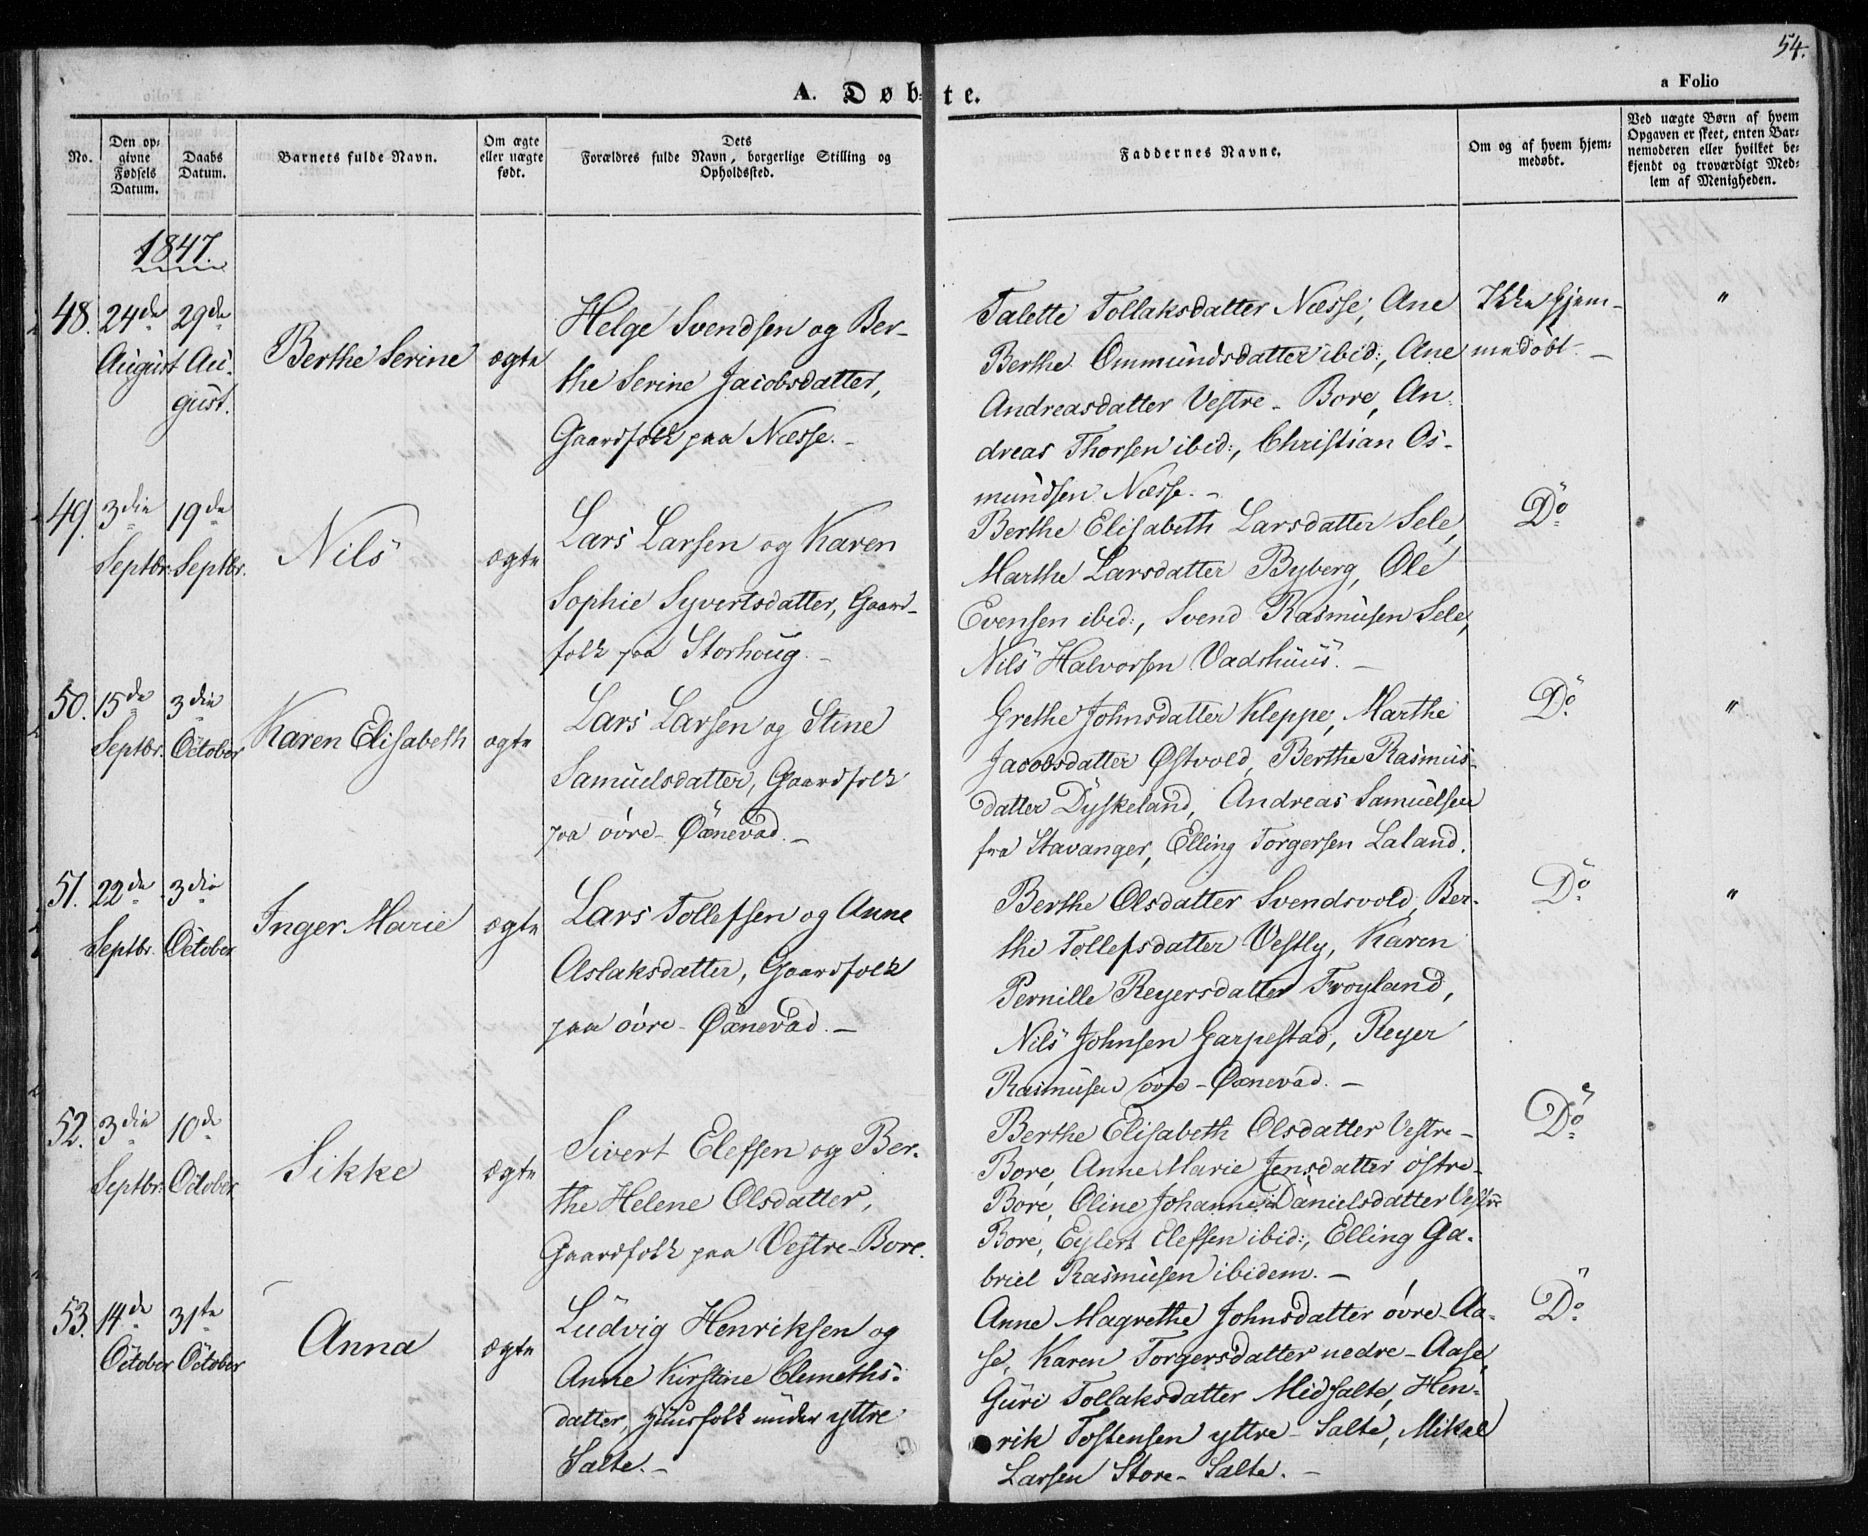 54.
a Folio
A. Døbte.
No.
Den opgivne Fødsels Datum.
Daabs Datum.
Barnets fulde Navn.
Om ægte eller uægte født.
Dets Forældres fulde Navn, borgerlige Stilling og Opholdssted.
Faddernes Navne.
Om og af hvem hjemmedøbt.
Ved uægte Børn af hvem Opgaven er skeet, enten Barnemoderen eller hvilket bekjendt og troværdigt Medlem af Menigheden.
1847.
48. 24de August
29de August.
Berthe Serine
ægte
Helge Svendsen og Ber-
the Serine Jacobsdatter,
Gaardfolk paa Næsse. -
Talette Tollaksdatter Næsse, Ane
Berthe Ommundsdatter ibid:, Ane
Andreasdatter Vestre-Bore, An-
dreas Thorsen ibid:, Christian Os-
mundsen Næsse. -
Ikke hjem-
medøbt. -
"
49. 3die Septbr.
19de Septbr.
Nils
ægte
Lars Larsen og Karen
Sophie Syvertsdatter, Gaard-
folk paa Storhoug. -
Berthe Elisabeth Larsdatter Sele,
Marthe Larsdatter Byberg, Ole
Evensen ibid:, Svend Rasmusen Sele,
Nils Halvorsen Vadshuus. -
Do
50. 15de Septbr.
3die October
Karen Elisabeth
ægte
Lars Larsen og Stine
Samuelsdatter, Gaardfolk
paa øvre-Øxnevad. -
Grethe Johnsdatter Kleppe, Marthe
Jacobsdatter Østvold, Berthe Rasmus-
datter Dyskeland, Andreas Samuelsen
fra Stavanger, Elling Torgersen Laland.
Do
"
51. 22de Septbr.
3die October
Inger Marie
ægte
Lars Tollefsen og Anne
Aslaksdatter, Gaardfolk
paa øvre-Øxnevad. -
Berthe Olsdatter Svendsvold, Ber-
the Tollefsdatter Vestly, Karen
Pernille Reyersdatter Frøyland,
Nils Johnsen Garpestad, Reyer
Rasmusen øvre-Øxnevad. -
Do
"
52. 3die Septbr.
10de October
Sikke
ægte
Sivert Eleffsen og Ber-
the Helene Olsdatter,
Gaardfolk paa Vestre-Bore.
Berthe Elisabeth Olsdatter Vestre-
Bore, Anne Marie Jensdatter østre-
Bore, Oline Johanne Danielsdatter Vestre
Bore, Eylert Eleffsen ibid:, Elling Ga-
briel Rasmusen ibidem. -
Do
53. 14de October
31te October
Anna
ægte
Ludvig Henriksen og
Anne Kirstine Clemeths-
datter, Huusfolk under yttre
Salte. -
Anne Magrethe Johnsdatter øvre-Aa-
se, Karen Torgersdatter nedre-Aase,
Guri Tollaksdatter Midsalte, Hen-
rik Tostensen yttre-Salte, Mikal
Larsen Store-Salte. -
Do